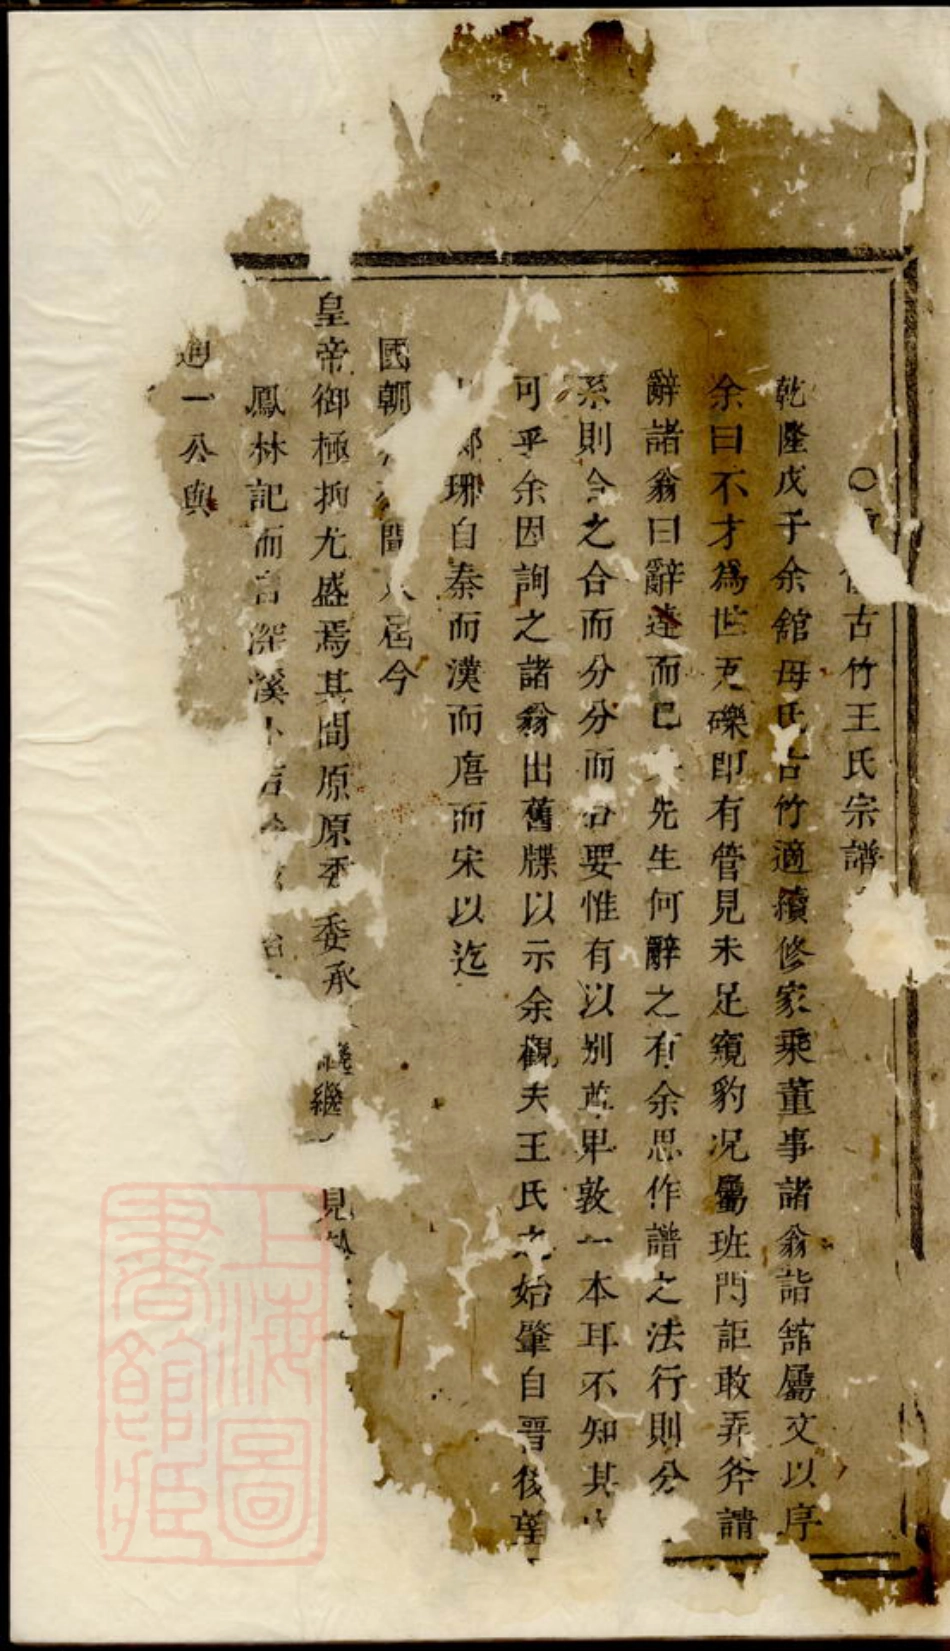 ○ 古竹王氏宗譜
乾隆戊子余舘母氏古竹適續修家乘董事諸翁詣舘屬文以序
余曰不才爲世瓦礫即有管見未足窺豹况屬班門詎敢弄斧請
辭諸翁曰辭達而已 先生何辭之有余思作譜之法行則分
系則合之合而分分而合要惟有以别尊卑敦一本耳不知其
可乎余因詢之諸翁出舊牒以示余觀夫王氏之始肇自晋後望
琊自秦而漢而唐而宋以迄
國朝 聞人屆今
皇帝御極抑尤盛焉其間原原委委承 繼 見
鳳林記而言深溪卜
廻一公與
上海圖
書館藏